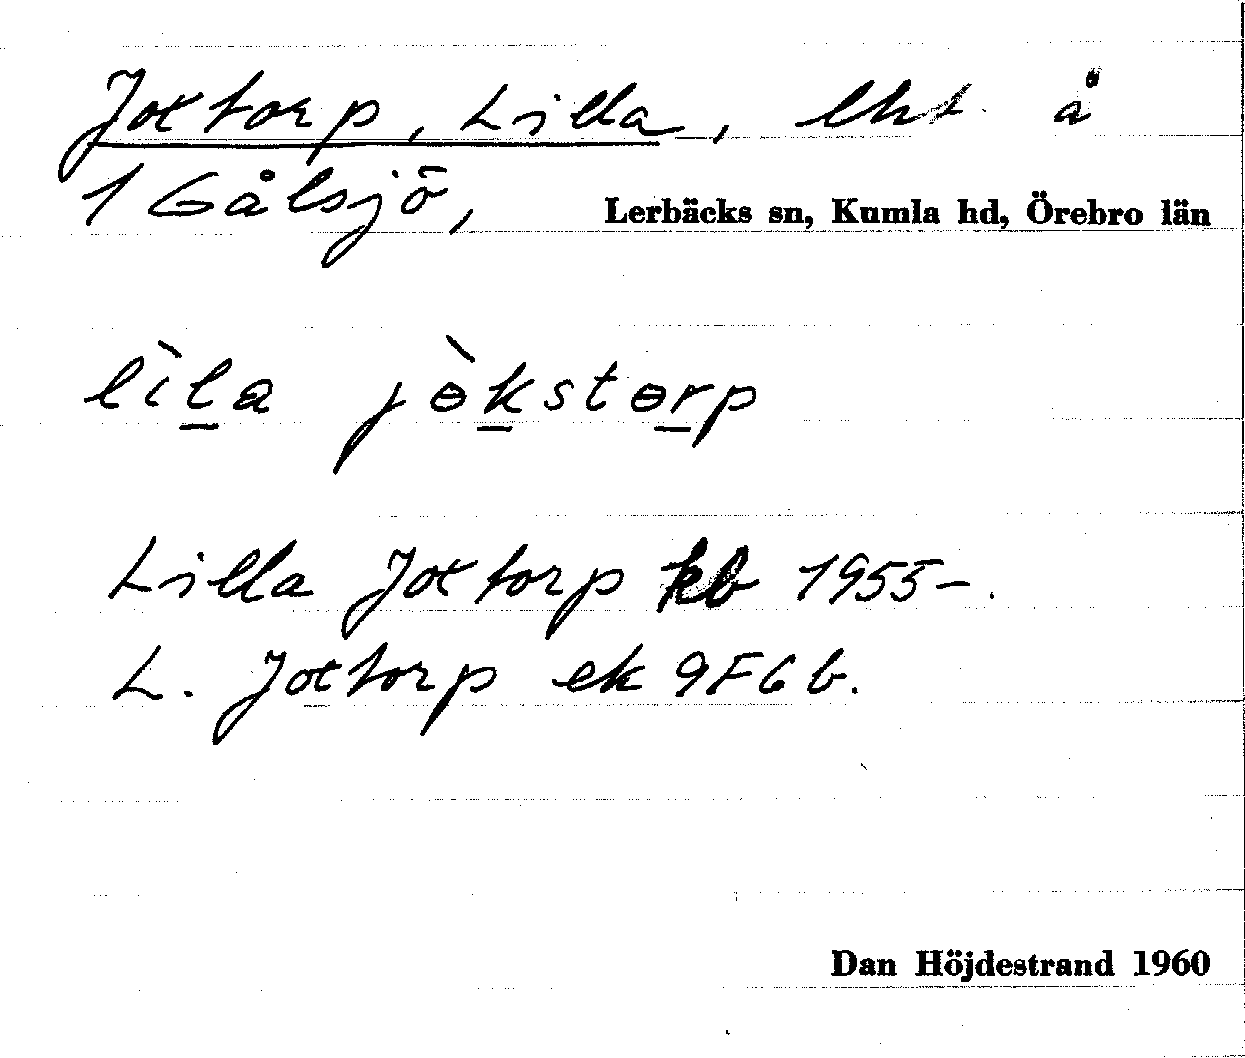 Joxtorp, Lilla, lht. å
1 Gålsjö, Lerbäcks sn, Kumla hd, Örebro län
lìl̲a jɵ̀k̲stɵr̲p
Lilla Joxtorp kb 1955-.
L. Joxtorp ek 9F6b.
Dan Höjdestrand 1960